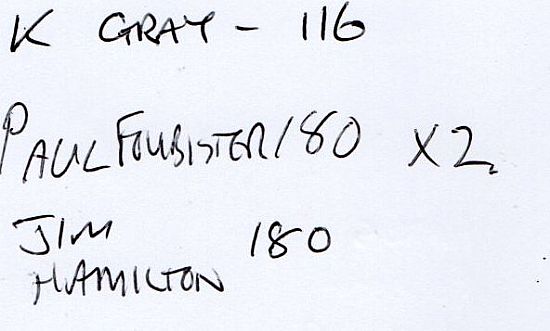 K GRAY - 116
PAUL FOUBISTER 180 X2.
JIM 180
HAMILTON